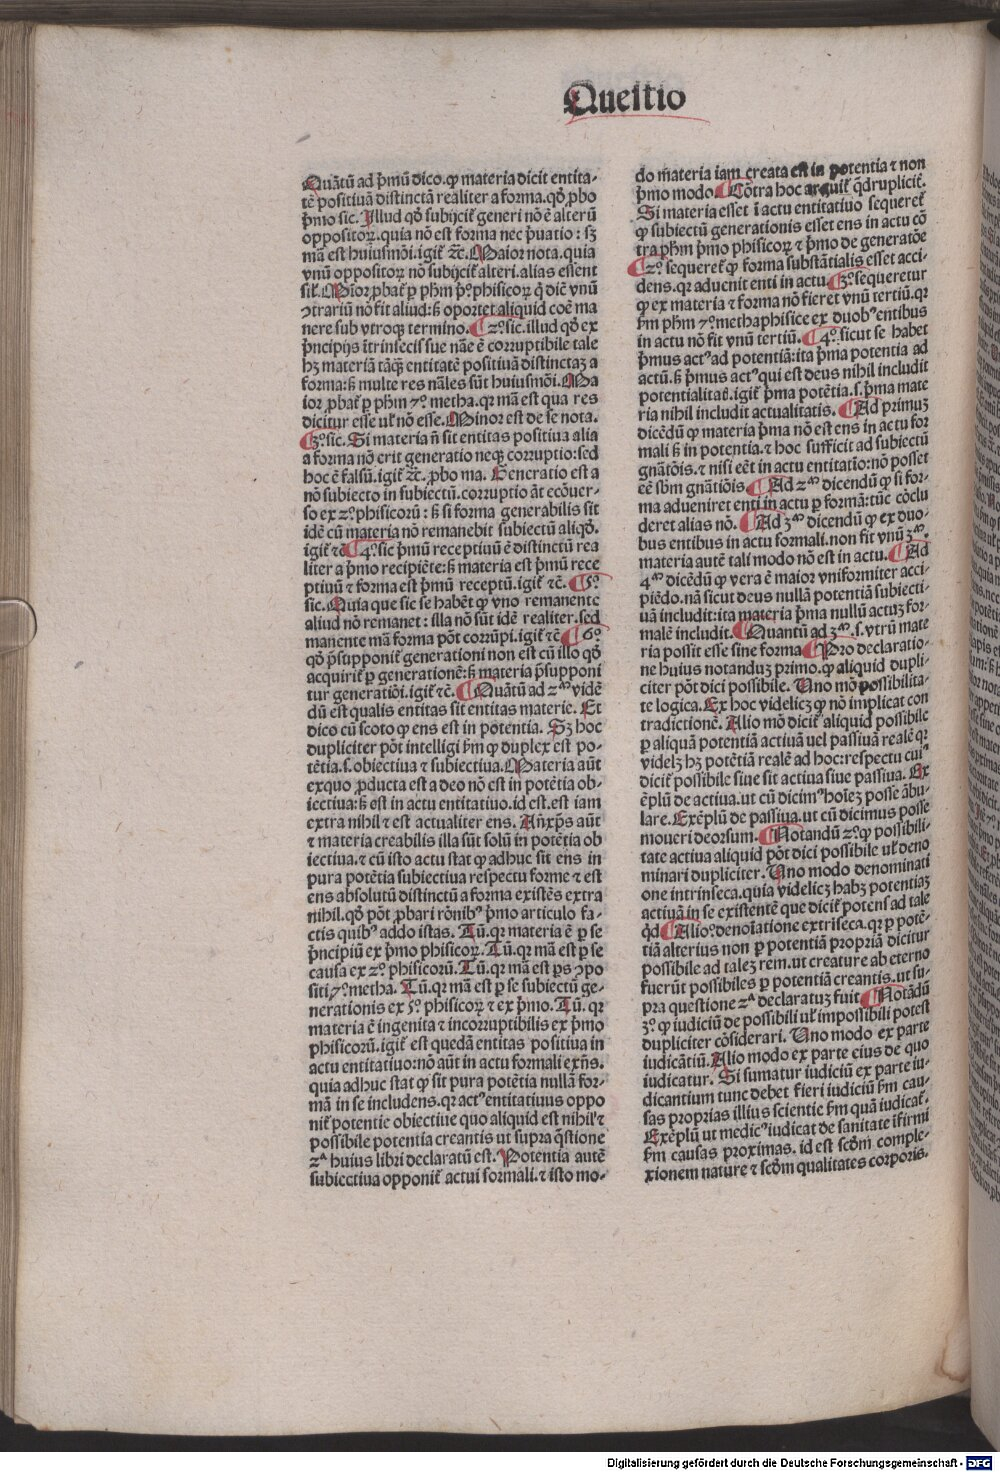 Questio
Quātū ad p̄mū dico.qꝫ materia dicit entita-
tē positiuā distinctā realiter a forma.qḋ ꝓbo
p̄mo sic. Illud qḋ subijcit̉ generi nō ē alterū
oppositoꝝ.quia nō est forma nec p̄uatio: sꝫ
mā est huiusmōi.igit̉ ⁊c̄.Maior nota.quia
vnū oppositoꝝ nō subijcit̉ alteri. alias essent
sil̉.Mīor ꝓbat̉ ꝑ pħm p̊.phisicoꝝ q̇ dic̄ vnū
ↄtrariū nō fit aliud:ꝫ oportet aliquid coē ma
nere sub vtroqꝫ termino. ¶2°.sic.illud qḋ ex
p̄ncipijs ītrinsecis sue nāe ē corruptibile tale
hꝫ materiā tāqꝫ entitatē positiuā distinctaꝫ a
forma:ꝫ multe res nāles sūt huiusmōi. Ma
ior ꝓbat̉ ꝑ pħm 7°.metha.qꝛ mā est qua res
dicitur esse ul̉ nō esse. Minor est de se nota.
¶3°.sic. Si materia n̄ sit entitas positiua alia
a forma nō erit generatio neqꝫ corruptio:sed
hoc ē falsū.igit̉ ⁊c̄. ꝓbo ma. Generatio est a
nō subiecto in subiectū.corruptio āt ecōuer-
so ex 2°.phisicorū: ꝫ si forma generabilis sit
idē cū materia nō remanebit subiectū aliqḋ.
igit̉ ⁊c̄ ¶4°.sic p̄mū receptiuū ē distinctū rea
liter a p̄mo recipiēte:ꝫ materia est p̄mū rece
ptiuū ⁊ forma est p̄mū receptū.igit̉ ⁊c̄. ¶5°.
sic. Quia que sic se habēt qꝫ vno remanente
aliud nō remanet: illa nō sūt idē realiter.sed
manente mā forma pōt corrūpi.igit̉ ⁊c̄ ¶6°.
qḋ p̄supponit̉ generationi non est cū illo qḋ
acquirit̉ ꝑ generationē:ꝫ materia p̄supponi
tur generatiōi.igit̉ ⁊c̄. ¶Quātū ad 2ᵐ vidē
dū est qualis entitas sit entitas materie. Et
dico cū scoto qꝫ ens est in potentia. Sꝫ hoc
dupliciter pōt intelligi ẜm qꝫ duplex est po-
tētia.s.obiectiua ⁊ subiectiua.Materia aūt
exquo ꝓducta est a deo nō est in potētia ob-
iectiua:ꝫ est in actu entitatiuo.id est.est iam
extra nihil ⁊ est actualiter ens. Añxp̄s aūt
⁊ materia creabilis illa sūt solū in potētia ob
iectiua.⁊ cū isto actu stat qꝫ adhuc sit ens in
pura potētia subiectiua respectu forme ⁊ est
ens absolutū distinctū a forma existēs extra
nihil.qḋ pōt ꝓbari rōnibꝰ p̄mo articulo fa-
ctis quibꝰ addo istas. Tū.qꝛ materia ē ꝑ se
p̄ncipiū ex p̄mo phisicoꝝ. Tū.qꝛ mā est ꝑ se
causa ex 2°.phisicorū. Tū.qꝛ mā est ps ↄpo
siti 7°.metha. Tū.qꝛ mā est ꝑ se subiectū ge-
nerationis ex 5°.phisicoꝝ ⁊ ex p̄mo. Tū. qꝛ
materia ē ingenita ⁊ incorruptibilis ex p̄mo
phisicorū.igit̉ est quedā entitas positiua in
actu entitatiuo:nō aūt in actu formali exñs.
quia adhuc stat qꝫ sit pura potētia nullā for-
mā in se includens.qꝛ actꝰ entitatiuus oppo
nit̉ potentie obiectiue quo aliquid est nihil ⁊
possibile potentia creantis ut supra q̄stione
2ᵃ huius libri declaratū est. Potentia autē
subiectiua opponit̉ actui formali.⁊ isto mo-
do materia iam creata est in potentia ⁊ non
p̄mo modo. ¶Cōtra hoc arguit̉ q̇drupliciṫ.
Si materia esset ī actu entitatiuo sequeret̉
qꝫ subiectū generationis esset ens in actu cō
tra pħm p̄mo phisicoꝝ ⁊ p̄mo de generatōe
¶2°.sequeret̉ qꝫ forma substātialis esset acci-
dens.qꝛ aduenit enti in actu ¶3°.sequeretur
qꝫ ex materia ⁊ forma nō fieret vnū tertiū.qꝛ
ẜm pħm 7°.methaphisice ex duobꝰ entibus
in actu nō fit vnū tertiū. ¶4°.sicut se habet
p̄mus actꝰ ad potentiā:ita p̄ma potentia ad
actū.ꝫ p̄mus actꝰ qui est deus nihil includit
potentialitaṫ.igit̉ p̄ma potētia.s.p̄ma mate
ria nihil includit actualitatis. ¶Ad primuꝫ
dicēdū qꝫ materia p̄ma nō est ens in actu for
mali ꝫ in potentia.⁊ hoc sufficit ad subiectū
gnātōis.⁊ nisi eēt in actu entitatīo:nō posset
eē sbm gnātiōis ¶Ad 2ᵐ dicendū qꝫ si for-
ma adueniret enti in actu ꝑ formā:tūc cōclu
deret alias nō. ¶Ad 3ᵐ dicendū qꝫ ex duo-
bus entibus in actu formali.non fit vnū 3ᵐ.
materia autē tali modo nō est in actu. ¶Ad
4ᵐ dicēdū qꝫ vera ē maior vniformiter acci-
piēdo.nā sicut deus nullā potentiā subiecti-
uā includit:ita materia p̄ma nullū actuꝫ for-
malē includit. ¶Quantū ad 3ᵐ.s.vtrū mate
ria possit esse sine forma ¶Pro declaratio-
ne huius notanduꝫ primo.qꝫ aliquid dupli-
citer pōt dici possibile. Uno mō possibilita-
te logica.Ex hoc videlicꝫ qꝫ nō implicat con
tradictionē. Alio mō dicit̉ aliquid possibile
ꝑ aliquā potentiā actiuā uel passiuā realē qꝛ
videlꝫ hꝫ potētiā realē ad hoc:respectu cuiꝰ
dicit̉ possibile siue sit actiua siue passiua. Ex
ēplū de actiua.ut cū dicimꝰ hoīeꝫ posse ābu-
lare. Exēplū de passiua.ut cū dicimus posse
moueri deorsum. ¶Notandū 2°.qꝫ possibili-
tate actiua aliquid pōt dici possibile ul̉ deno
minari dupliciter. Uno modo denominati
one intrinseca.quia videlicꝫ habꝫ potentiaꝫ
actiuā in se existentē que dicit̉ potens ad tale
q̇d ¶Alio°.denoīatione extrīseca.qꝛ ꝑ potē-
tiā alterius non ꝑ potentiā propriā dicitur
possibile ad taleꝫ rem.ut creature ab eterno
fuerūt possibiles ꝑ potentiā creantis.ut su-
pra questione 2ᵃ declaratuꝫ fuit ¶Notādū
3°.qꝫ iudiciū de possibili ul̉ impossibili potest
dupliciter cōsiderari. Uno modo ex parte
iudicātiū. Alio modo ex parte eius de quo
iudicatur. Si sumatur iudiciū ex parte iu-
dicantium tunc debet fieri iudiciū ẜm cau-
sas proprias illius scientie ẜm quā iudicat̉.
Exēplū ut medicꝰ iudicat de sanitate īfirmi
ẜm causas proximas. id est scḋm comple-
xionem nature ⁊ scḋm qualitates corporis.
Digitalisierung gefördert durch die Deutsche Forschungsgemeinschaft - DFG